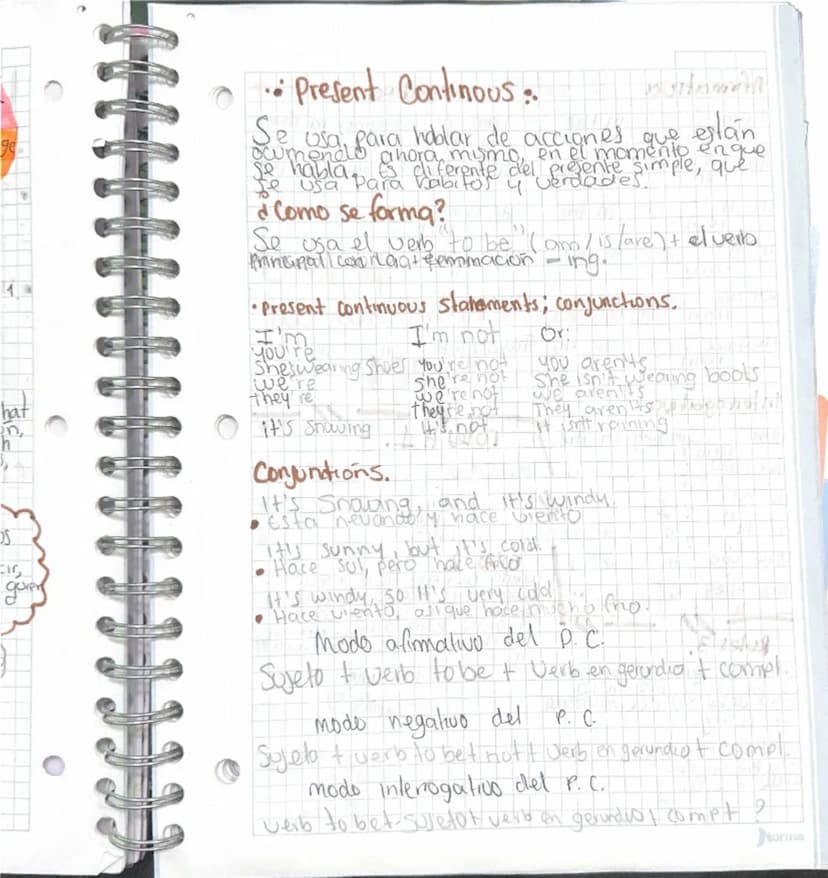 ge
1.
hat
en,
h
os
cir,
guien
.: Present Continous :.
Se usa para hablar de acciones que están
ocurriendo ahora mismo, en el momento en que
se habla. Es diferente del presente simple, que
se usa para habitos y verdades.
¿Como se forma?
Se usa el verb "to be" (am/is/are) + el verb
principal con la terminacion -ing.
• Present continuous Statements; conjunctions.
I'm I'm not Or:
you're
She's wearing shoes you're not you aren't
we're she're not She isn't wearing boots
they're we're not we aren't
they're not They aren't
it's snowing it's not it isn't raining
Conjuntions.
It's Snowing, and it's windy
• Esta nevando y hace viento
It's sunny, but it's cold.
• Hace sol, pero hace frio
It's windy, so it's very cold
• Hace viento, asi que hace mucho frio.
Modo afirmativo del P.C.
Sujeto + verb to be + Verb en gerundio + compl.
modo negativo del P.C.
Sujeto + verb to be + not + verb en gerundio + compl.
modo interrogativo del P.C.
verb to be + sujeto + verb en gerundio + compt ?
Norma